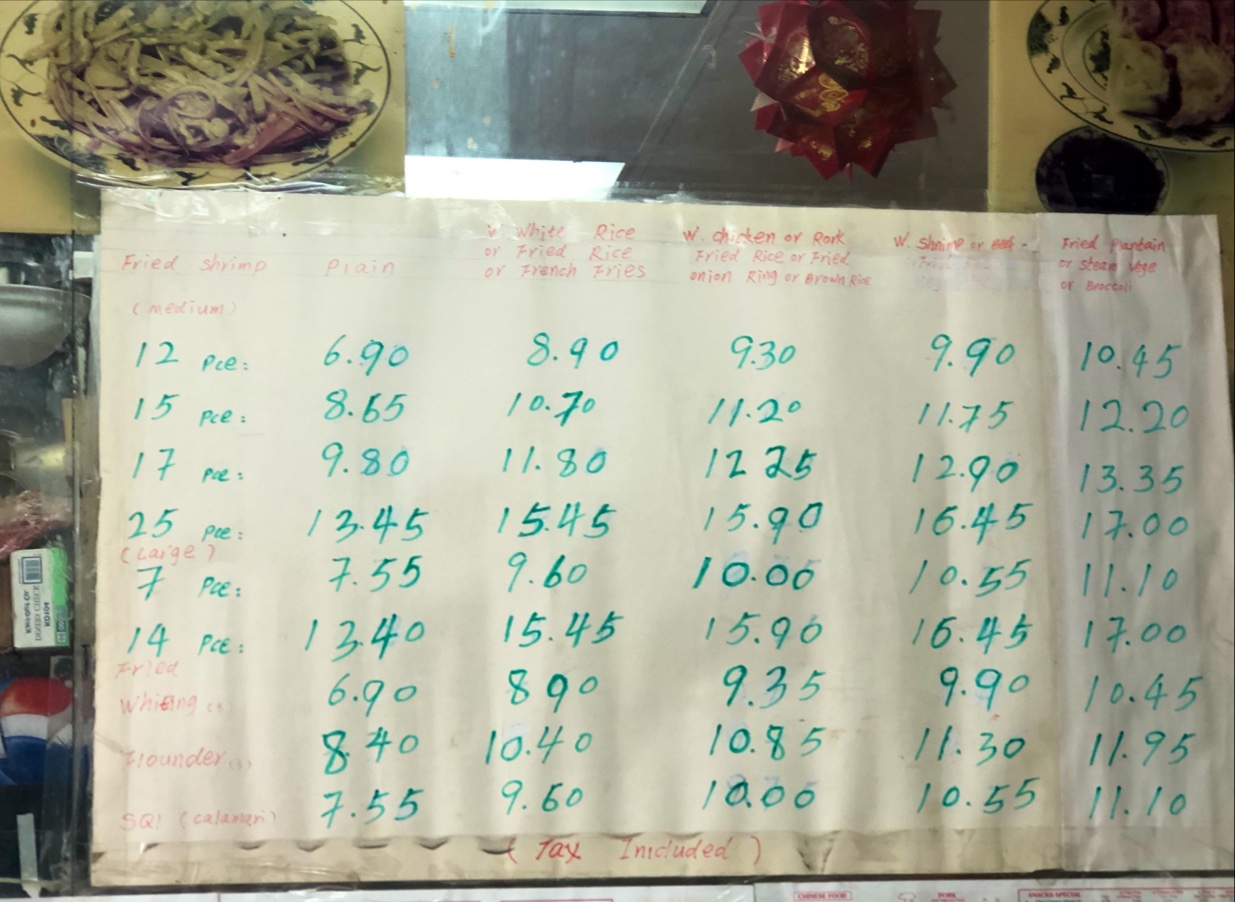 W White Rice
or Fried Rice
or French Fries
W. chicken or Pork
Fried Rice or Fried
onion Ring or Brown Rice
W. Shrimp or Beef
Fried Plantain
or Steam Vege
or Broccoli
Fried Shrimp Plain
(medium)
12 Pce: 6.90 8.90 9.30 9.90 10.45
15 Pce: 8.65 10.70 11.20 11.75 12.20
17 Pce: 9.80 11.80 12 25 12.90 13.35
25 Pce: 13.45 15.45 15.90 16.45 17.00
(Large)
7 Pce: 7.55 9.60 10.00 10.55 11.10
14 Pce: 13.40 15.45 15.90 16.45 17.00
Fried
Whiting (3) 6.90 8 90 9.35 9.90 10.45
Flounder (3) 8.40 10.40 10.85 11.30 11.95
SQI (calamari) 7.55 9.60 10.00 10.55 11.10
(Tax Included)
CHINESE FOOD
PORK
SNACKS SPECIAL